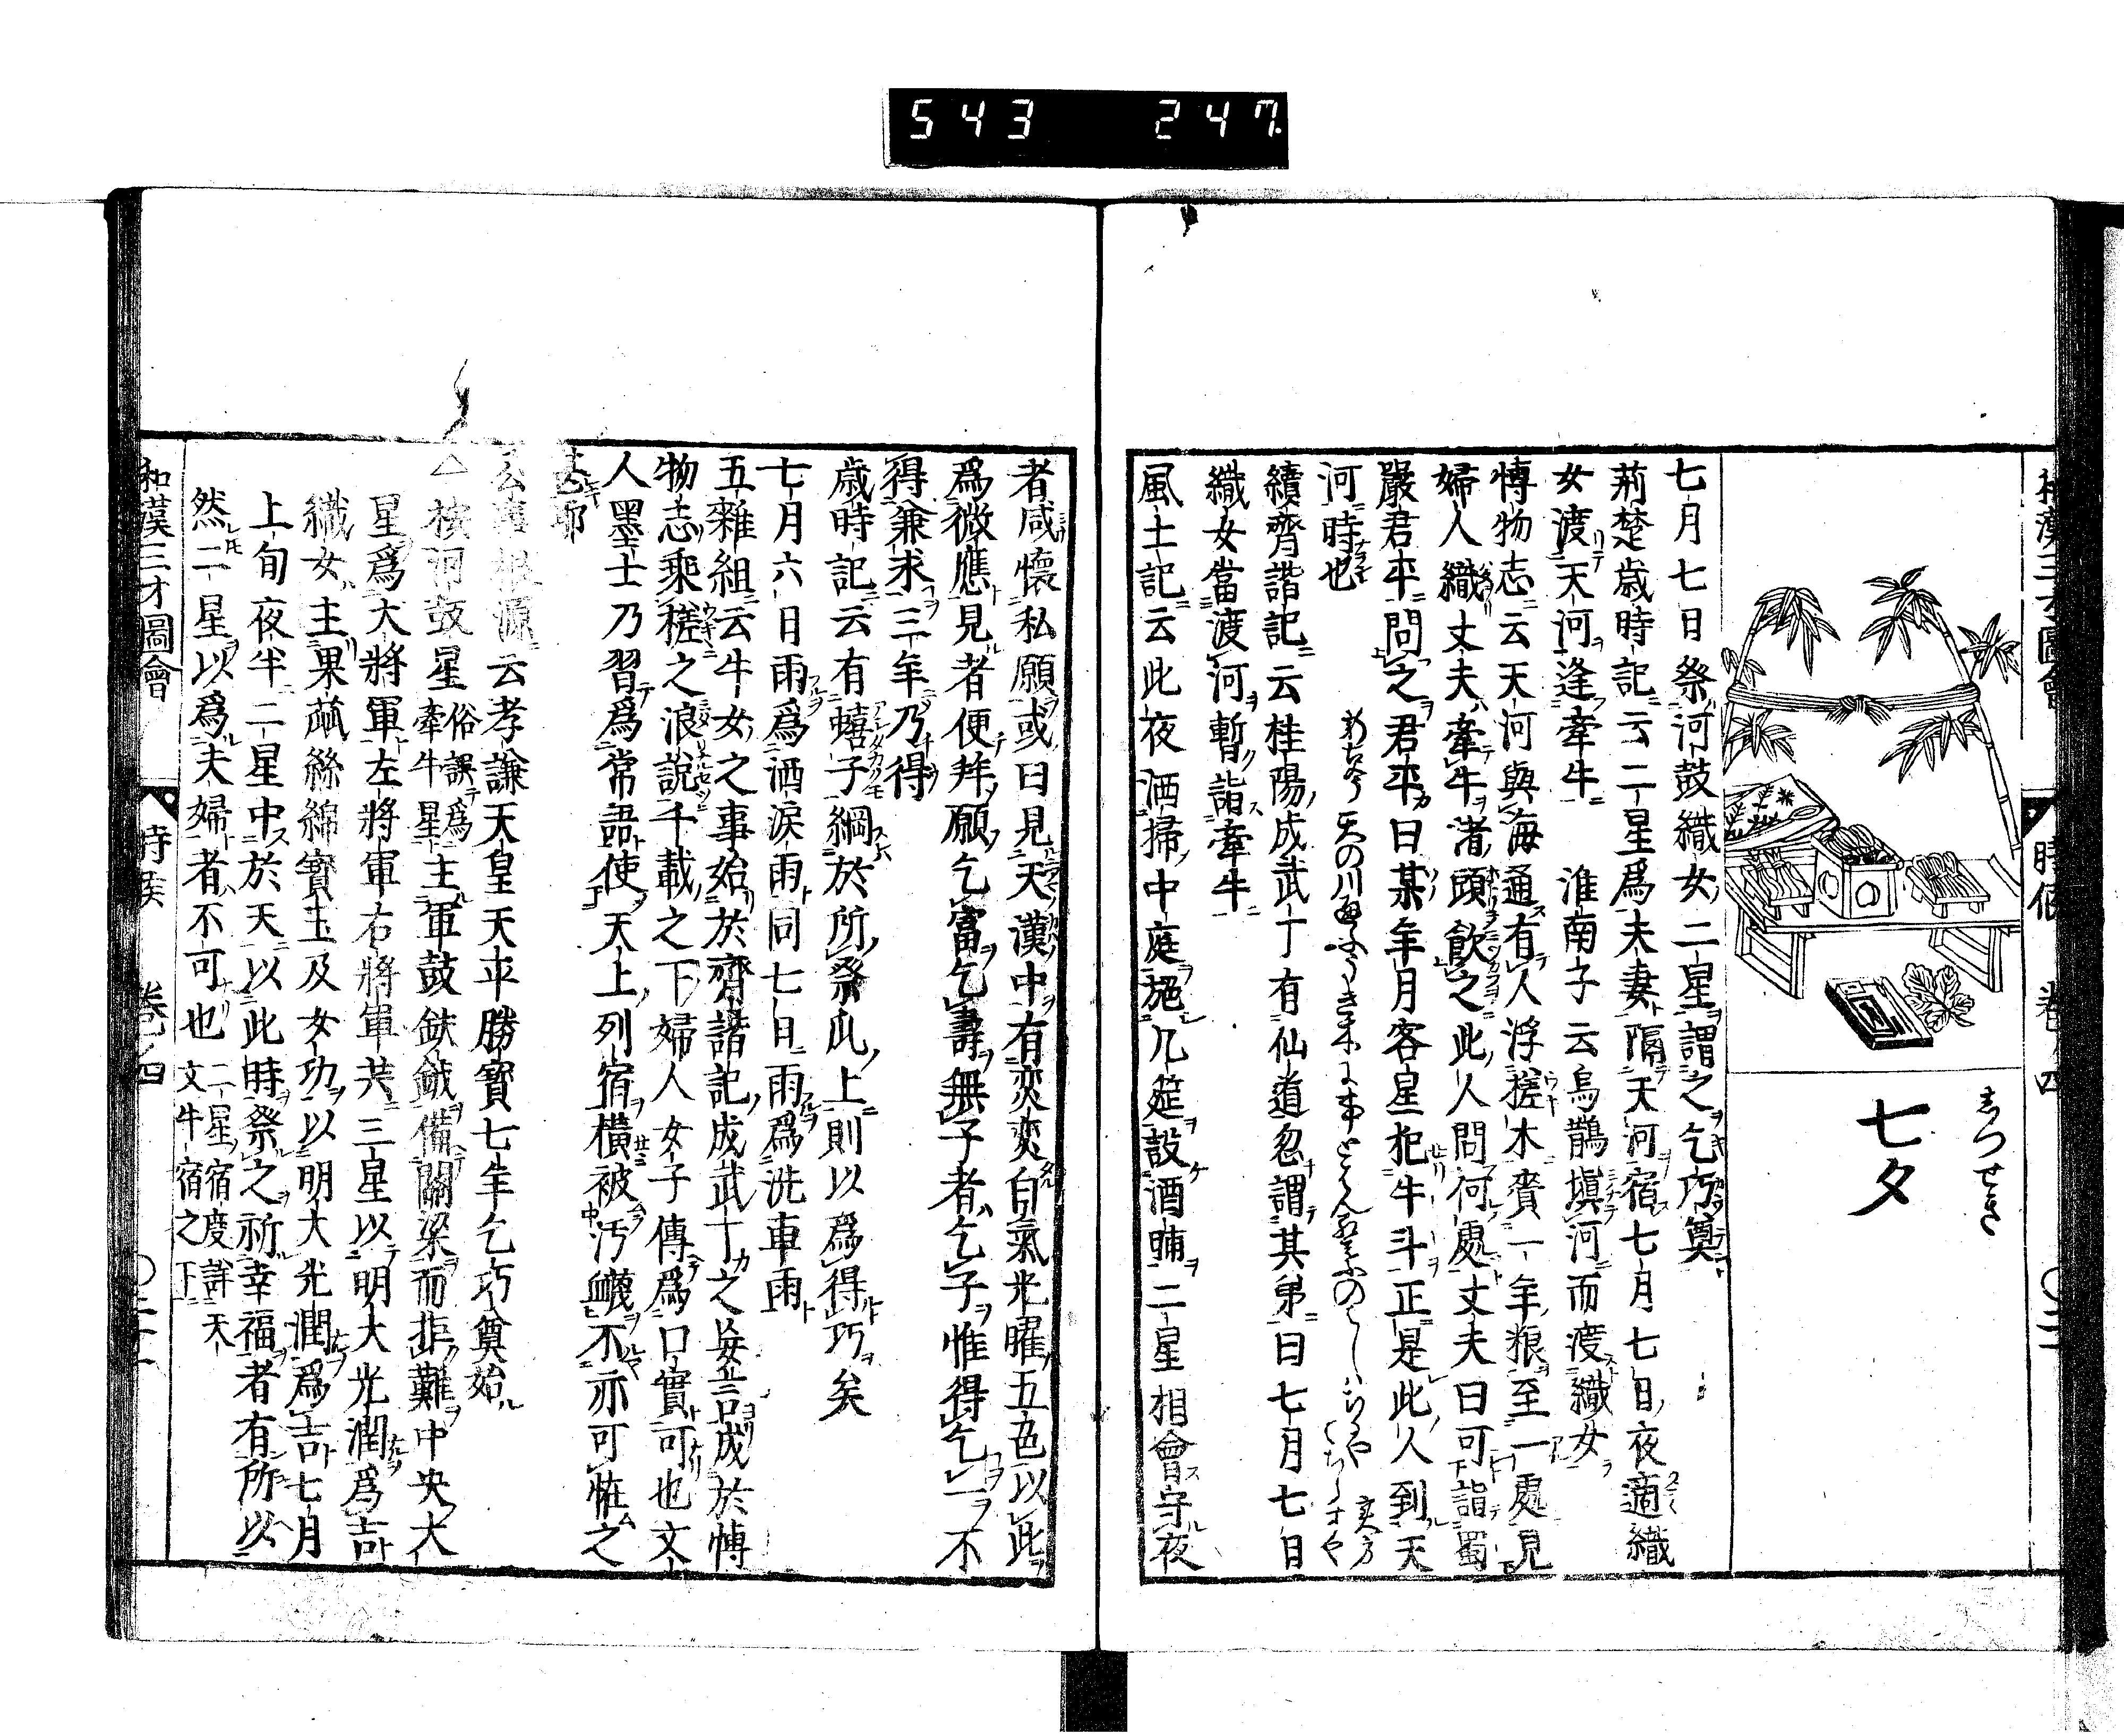 543 247
和漢三才圖會 時候 卷ノ四 〇二十
しつせき
七夕
七月七日祭河鼓織女二星謂之乞巧奠
荊楚歳時記云二星爲夫妻隔天河宿七月七日夜適織
女渡天河逢牽牛 淮南子云烏鵲塡河而渡織女
博物志云天河與海通有人浮槎木賚一年粮至一處見
婦人織丈夫牽牛渚頭飲之此人問何處丈夫曰可詣蜀
嚴君平問之君平曰某年月客星犯牛斗正是此人到天
河時也
續齊諧記云桂陽成武丁有仙道忽謂其弟曰七月七日
織女當渡河暫詣牽牛
風土記云此夜洒掃中庭施几筵設酒晡二星相會守夜
者咸懷私願或曰見天漢中有奕奕白氣光曜五色以此
爲徴應見者便拜願乞富乞壽無子者乞子惟得乞一不
得兼求三年乃得
歳時記云有蟢子綱於所祭瓜上則以爲得巧矣
七月六日雨爲洒淚雨同七日雨爲洗車雨
五雜組云牛女之事始於齊諧記成武丁之妄言成於博
物志乘槎之浪說千載之下婦人女子傳爲口實可也文
人墨士乃習爲常語使天上列宿橫被汚衊不亦可恠之
甚耶
公事根源云孝謙天皇天平勝寶七年乞巧奠始
△按河鼓星俗誤爲牽牛星主軍鼓鈇鉞備關梁而拒難中央大
星爲大將軍左將軍右將軍共三星以明大光潤爲吉
織女主果蓏絲綿寳玉及女功以明大光潤爲吉七月
上旬夜半二星中於天以此時祭之祈幸福者有所以
然二星以爲夫婦者不可也二星宿度詳天文牛宿之下
和漢三才圖會 時候 卷ノ四 〇二十一